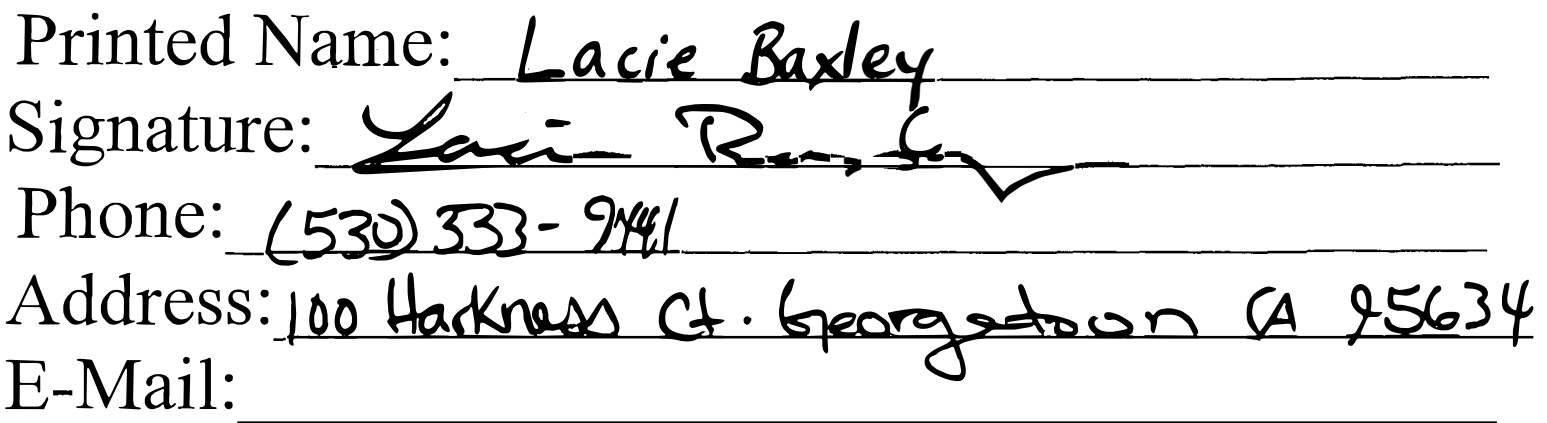 Printed Name: Lacie Baxley
Signature: Lacie
Phone: (530) 333-9441
Address: 100 Harkness Ct. Georgetown CA 95634
E-Mail: